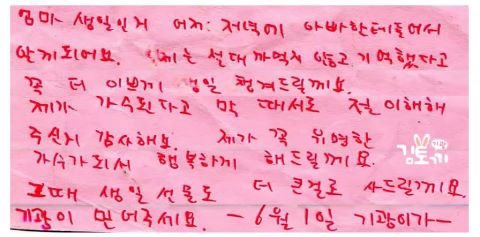 엄마 생일인거 어제 저녁에 아빠한테들어서
알게되어요. 이제는 절대 까먹지 않고 기억했다고
꼭 더 이쁘게 생일 챙겨드릴께요.
제가 가수된다고 막 떼서도 절 이해해
주신거 감사해요. 제가 꼭 유명한
가수가되서 행복하게 해드릴께요.
그때 생일 선물도 더 큰걸로 사드릴께요.
기광이 믿어주세요. - 6월 1일 기광이가 -
김토끼